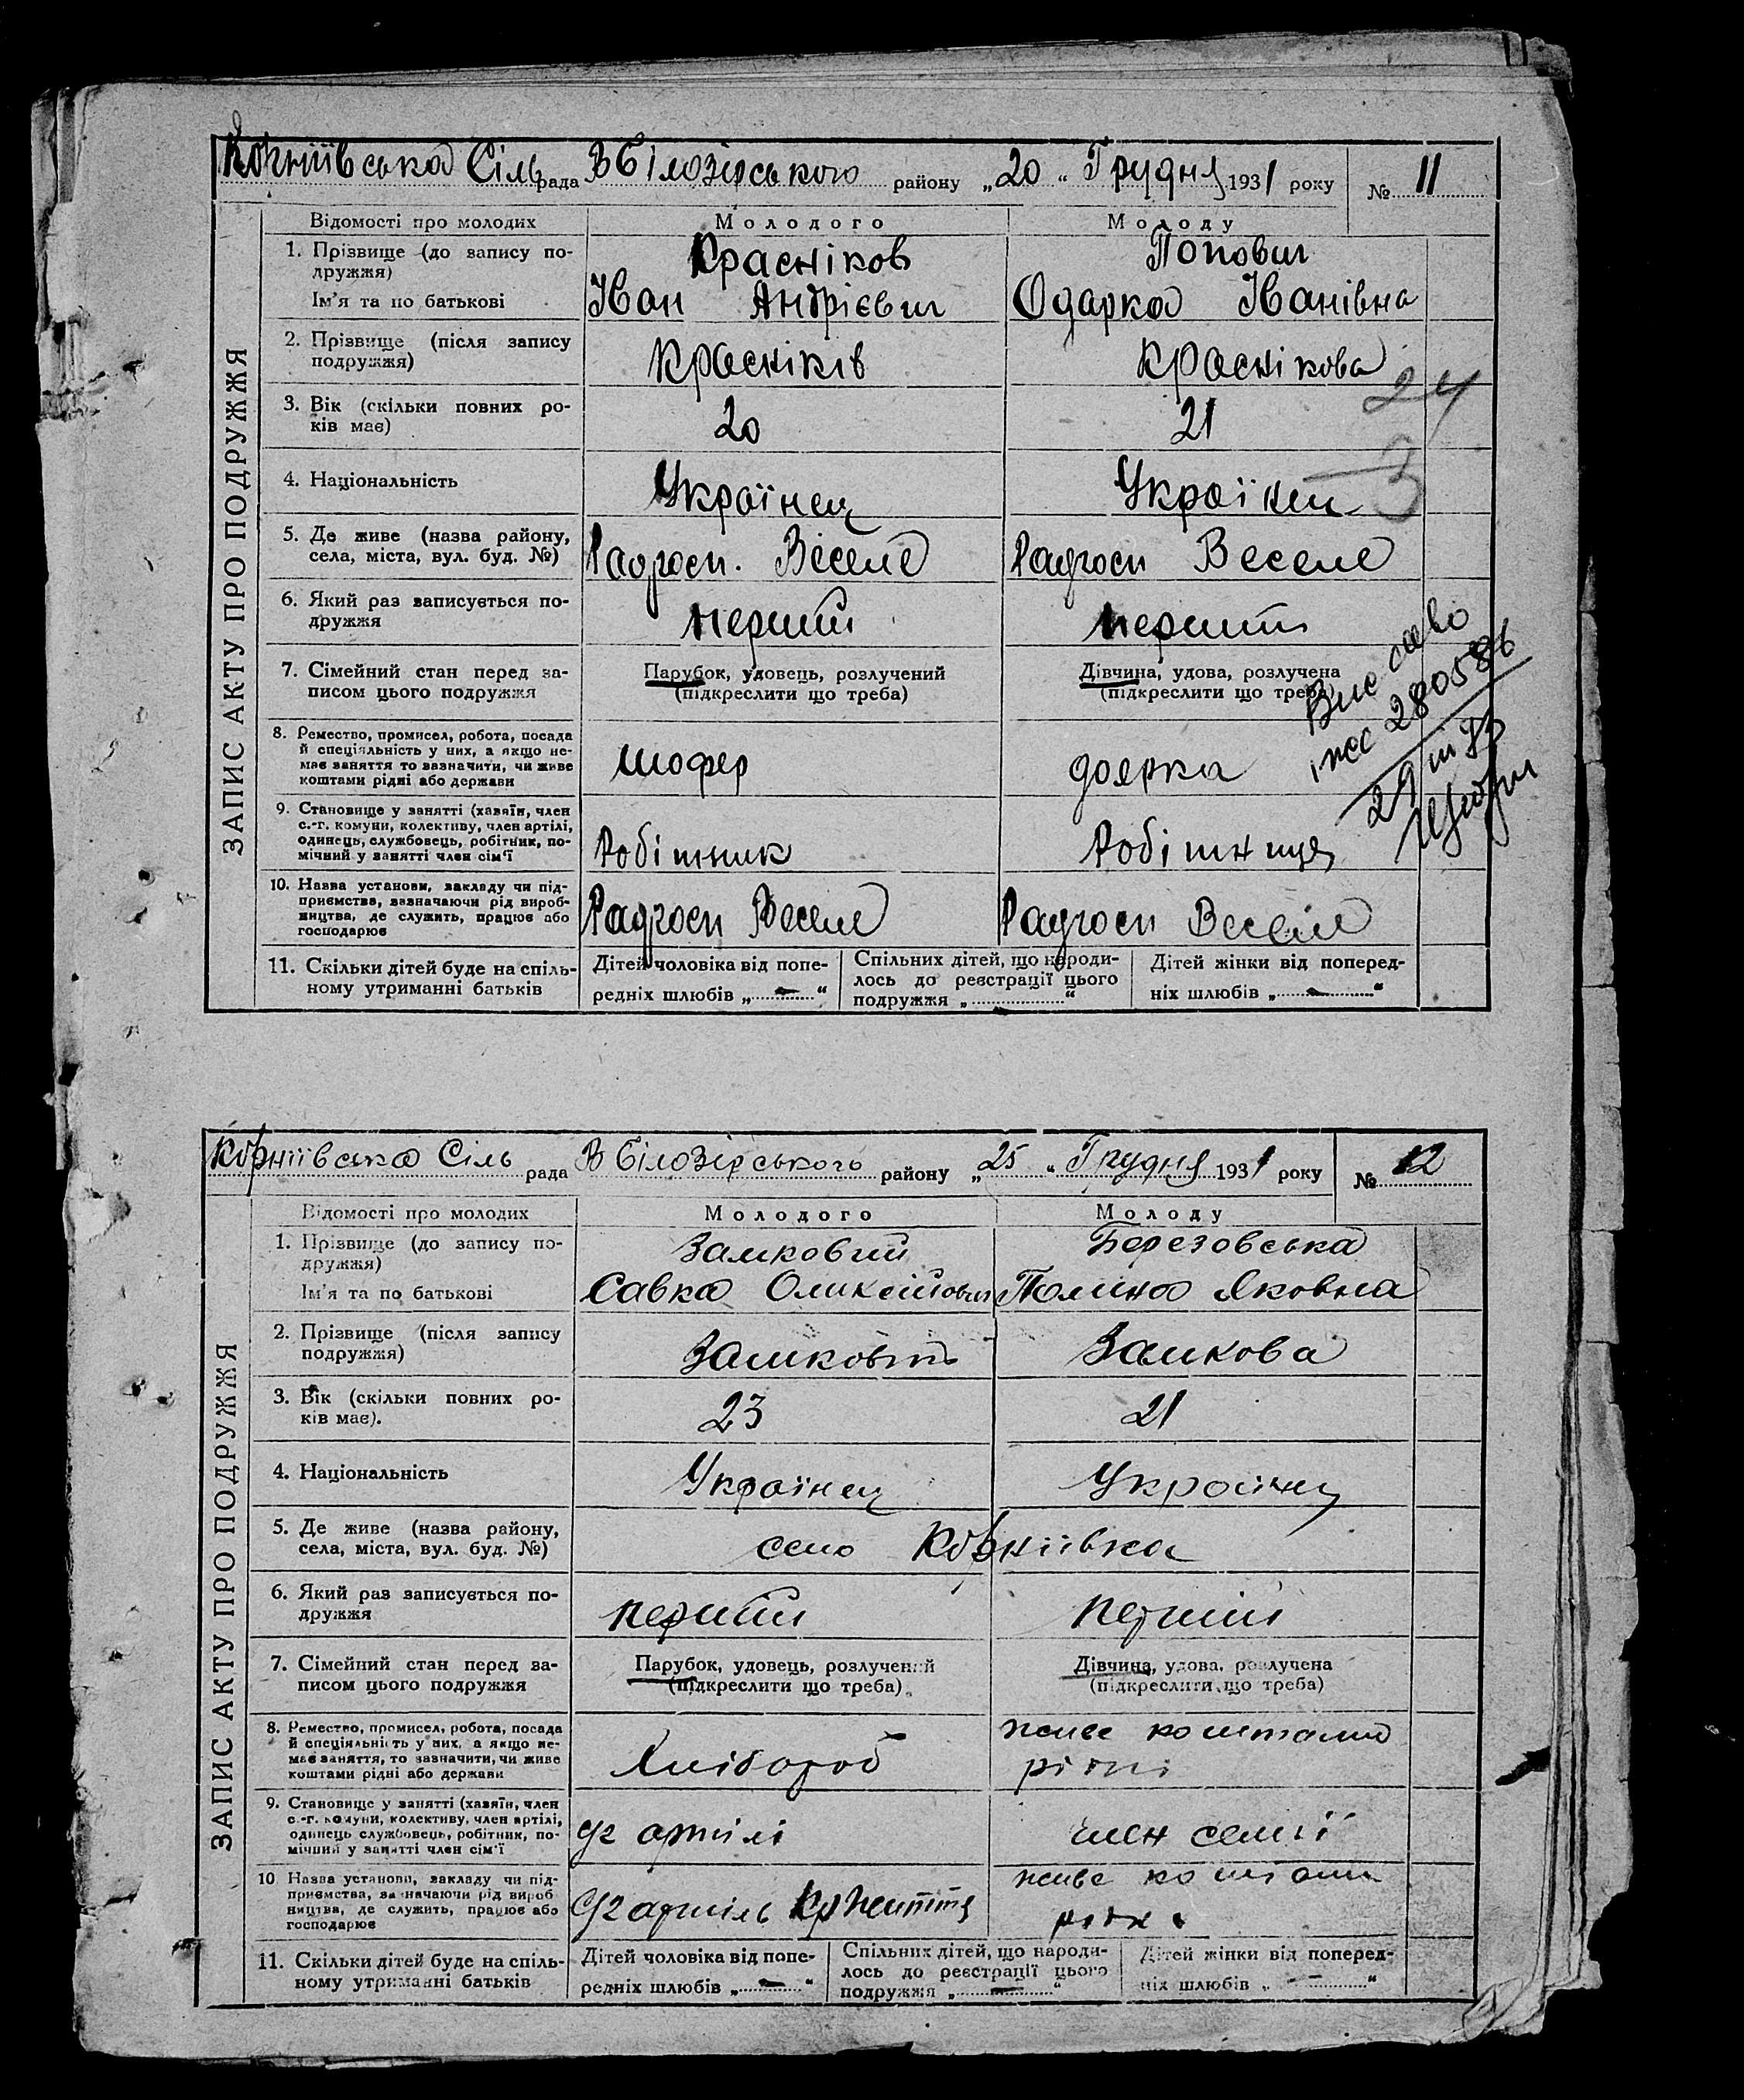 Корніївська Сіль рада В Білозірського району „20“ Грудня 1931 року № 11
ЗАПИС АКТУ ПРО ПОДРУЖЖЯ
Відомості про молодих Молодого Молоду
1. Прізвище (до запису по- Красніков Попович
дружжя)
Ім'я та по батькові Іван Андрієвич Одарка Іванівна
2. Прізвище (після запису Красніків Краснікова
подружжя)
24
3. Вік (скільки повних ро- 20 21
ків має)
4. Національність Українец Українец
3
5. Де живе (назва району,
села, міста, вул. буд. №) Радгосп. Веселе Радгосп Веселе
6. Який раз записується по- перший перший
дружжя
7. Сімейний стан перед за- Парубок, удовець, розлучений Дівчина, удова, розлучена
писом цього подружжя (підкреслити що треба) (підкреслити що треба)
280586
8. Ремество, промисел, робота, посада
й спеціяльність у них, а якщо не-
має заняття то зазначити, чи живе шофер доярка
коштами рідні або держави
9. Становище у занятті (хазяїн, член
с.-г. комуни, колективу, член артілі,
одинець, службовець, робітник, по- Робітник Робітниця
мічний у занятті член сім'ї
10. Назва установи, закладу чи під-
приємства, зазначаючи рід вироб-
ництва, де служить, працює або Радгосп Веселе Радгосп Веселе
господарює
11. Скільки дітей буде на спіль- Дітей чоловіка від попе- Спільних дітей, що народи- Дітей жінки від поперед-
ному утриманні батьків редніх шлюбів „—“ лось до реєстрації цього ніх шлюбів „—“
подружжя „ “
Корніївська Сіль рада В Білозірського району „25“ Грудня 1931 року № 12
ЗАПИС АКТУ ПРО ПОДРУЖЖЯ
Відомості про молодих Молодого Молоду
1. Прізвище (до запису по- Замковий Березовська
дружжя)
Ім'я та по батькові Савка Оликсійович Полина Яковна
2. Прізвище (після запису Замковий Замкова
подружжя)
3. Вік (скільки повних ро- 23 21
ків має).
4. Національність Українец Українец
5. Де живе (назва району,
села, міста, вул. буд. №) село Корніївка
6. Який раз записується по- перший перший
дружжя
7. Сімейний стан перед за- Парубок, удовець, розлучений Дівчина, удова, розлучена
писом цього подружжя (підкреслити що треба) (підкреслити що треба)
8. Ремество, промисел, робота, посада живе коштами
й спеціяльність у них, а якщо не-
має заняття, то зазначити, чи живе Хлібороб рідні
коштами рідні або держави
9. Становище у занятті (хазяїн, член
с.-г. комуни, колективу, член артілі,
одинець службовець, робітник, по- артілі член семії
мічний у занятті член сім'ї
10 Назва установи, закладу чи під- живе коштами
приємства, зазначаючи рід вироб
ництва, де служить, працює або артіль Кр Життя рідні
господарює
11. Скільки дітей буде на спіль- Дітей чоловіка від попе- Спільних дітей, що народи- Дітей жінки від поперед-
ному утриманні батьків редніх шлюбів „—“ лось до реєстрації цього ніх шлюбів „—“
подружжя „—“